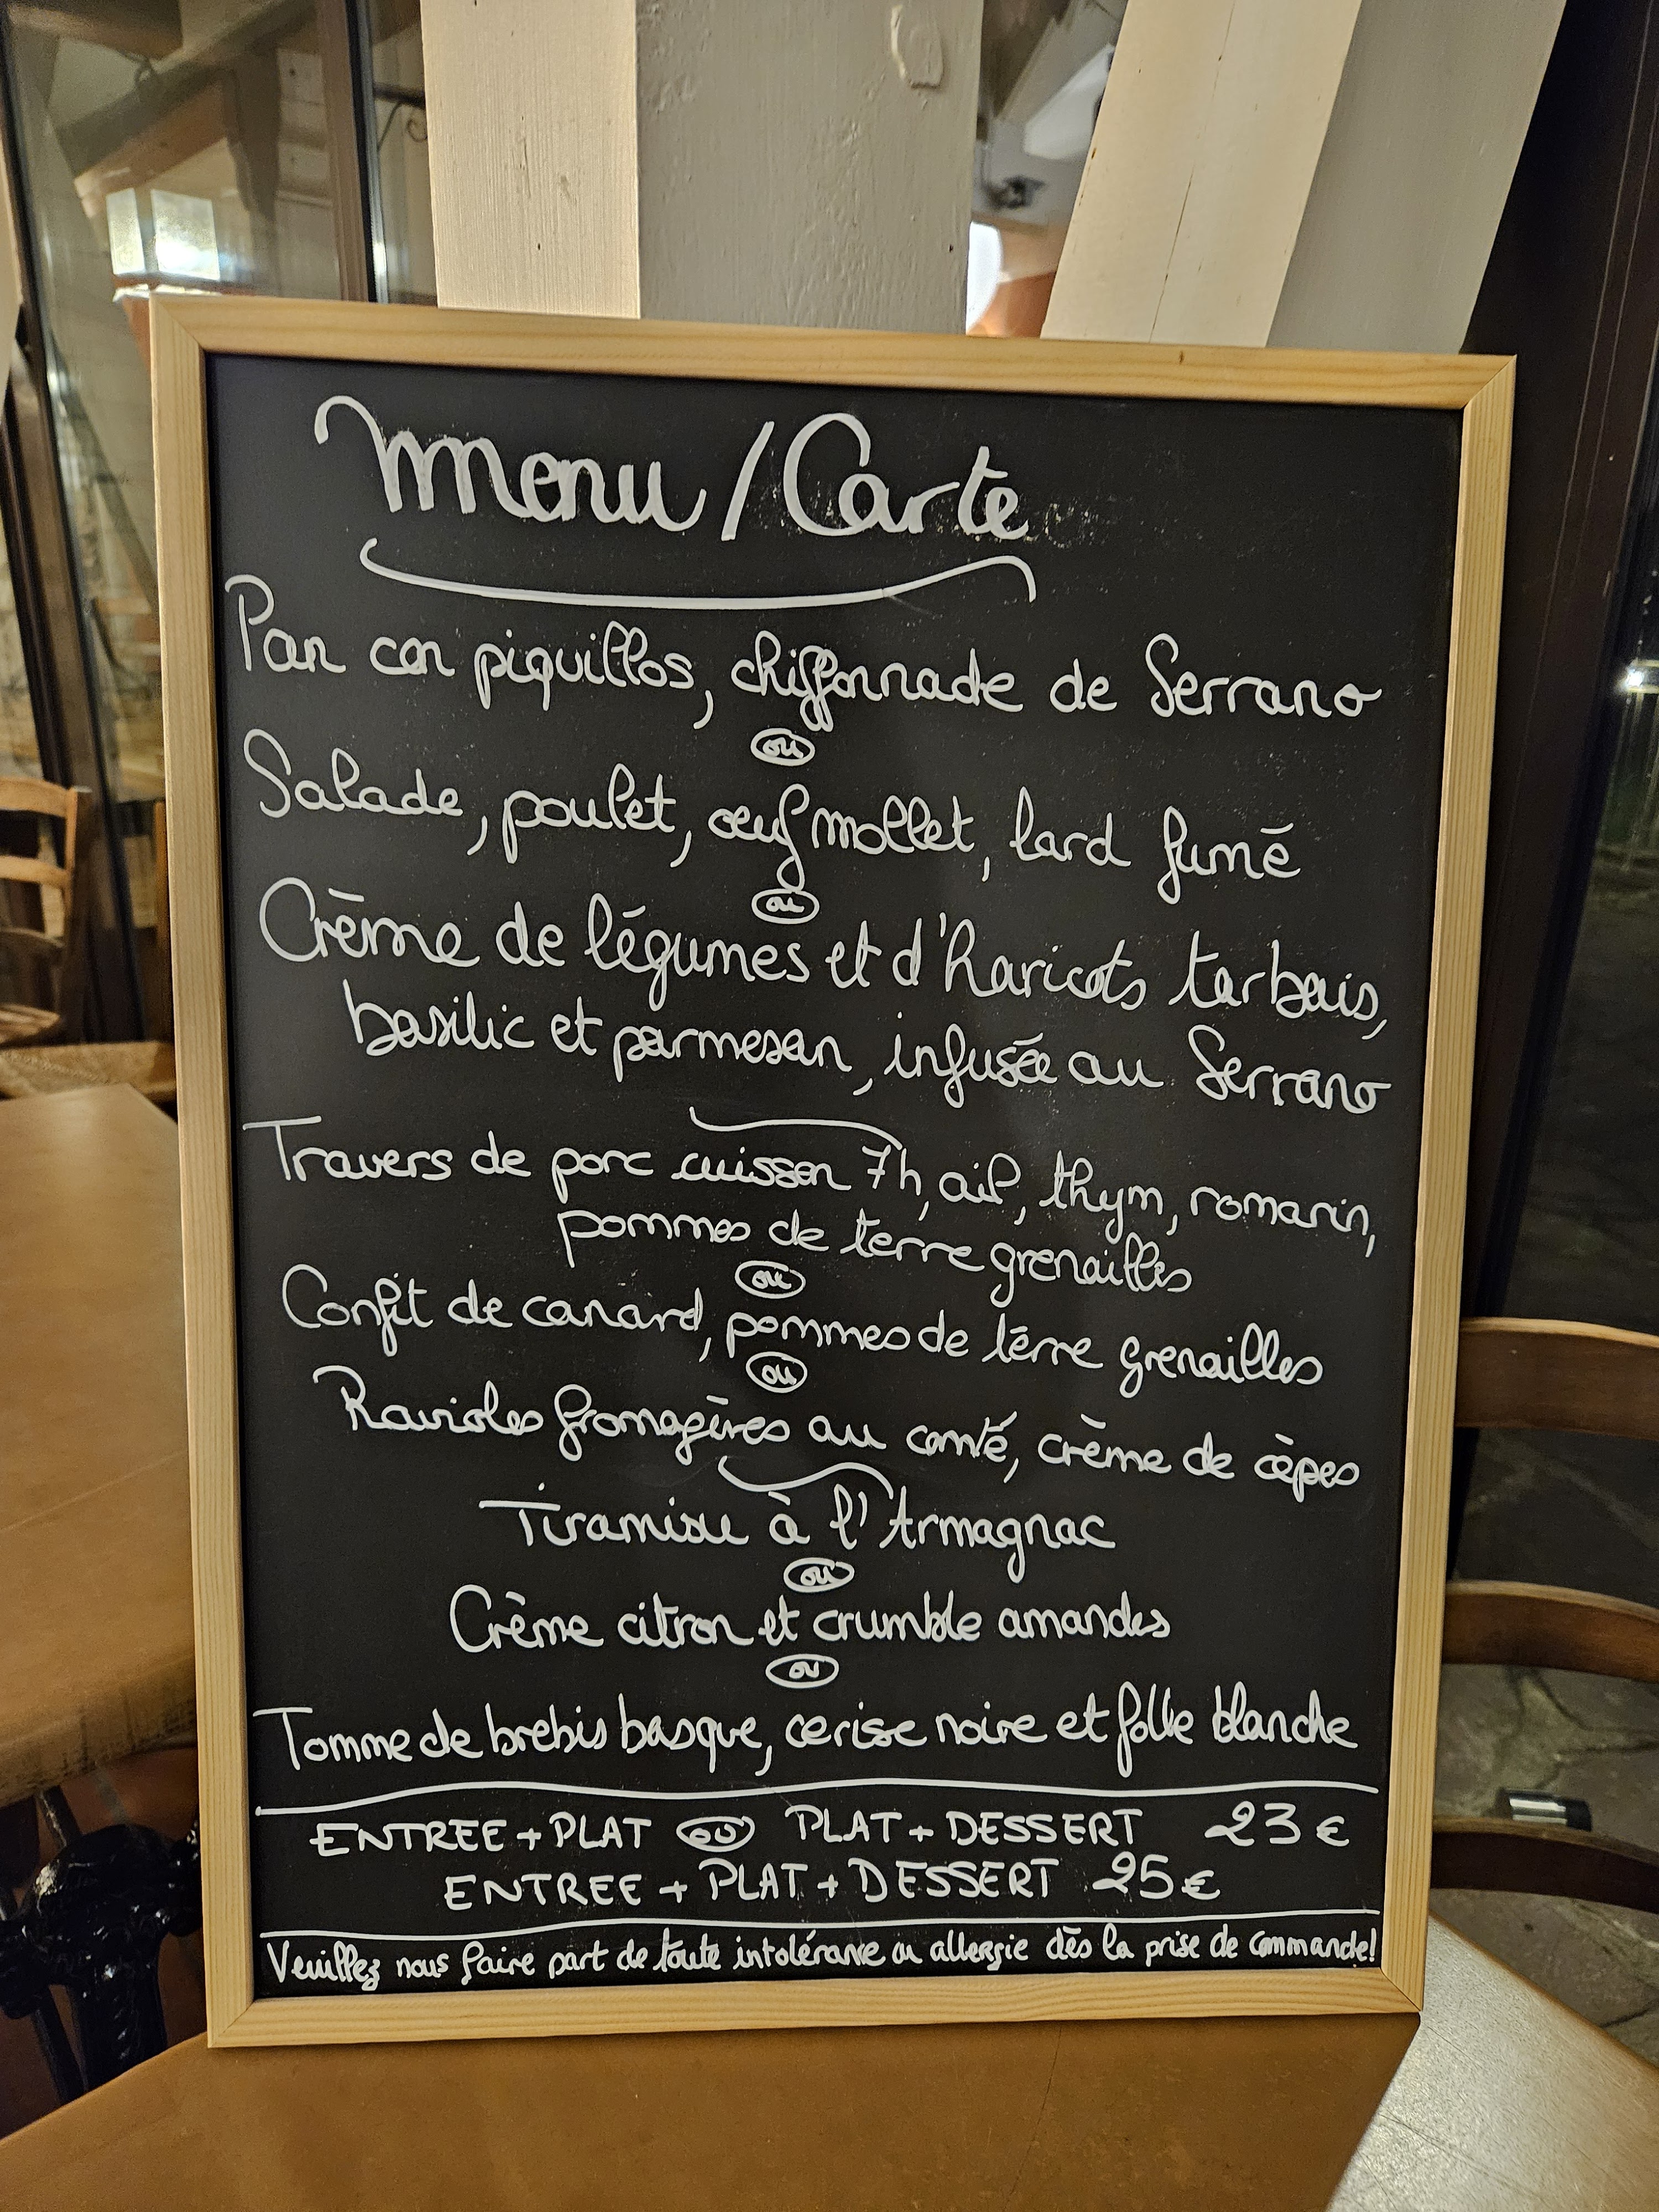 Menu / Carte
Pan con piquillos, chiffonnade de Serrano
ou
Salade, poulet, œuf mollet, lard fumé
ou
Crème de légumes et d'haricots tarbais,
basilic et parmesan, infusée au Serrano
Travers de porc cuisson 7h, ail, thym, romarin,
pommes de terre grenailles
ou
Confit de canard, pommes de terre grenailles
ou
Ravioles fromagères au comté, crème de cèpes
Tiramisu à l'Armagnac
ou
Crème citron et crumble amandes
ou
Tomme de brebis basque, cerise noire et folle blanche
ENTREE + PLAT ou PLAT + DESSERT 23 €
ENTREE + PLAT + DESSERT 25 €
Veuillez nous faire part de toute intolérance ou allergie dès la prise de commande!